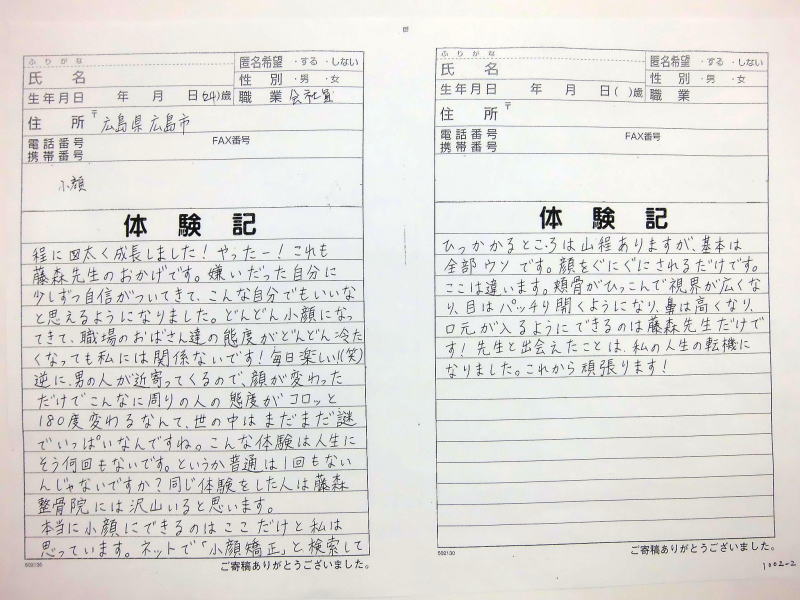 ふりがな
氏名
匿名希望 ・する ・しない
性別 ・男 ・女
生年月日 年 月 日(24)歳
職業 会社員
住所 〒 広島県広島市
電話番号
携帯番号
FAX番号
小顔
体験記
程に図太く成長しました!やったー!これも
藤森先生のおかげです。嫌いだった自分に
少しずつ自信がついてきて、こんな自分でもいいな
と思えるようになりました。どんどん小顔になっ
てきて、職場のおばさん達の態度がどんどん冷た
くなっても私には関係ないです!毎日楽しい!(笑)
逆に、男の人が近寄ってくるので、顔が変わった
だけでこんなに周りの人の態度がコロッと
180度変わるなんて、世の中はまだまだ謎
でいっぱいなんですね。こんな体験は人生に
そう何回もないです。というか普通は1回もない
んじゃないですか?同じ体験をした人は藤森
整骨院には沢山いると思います。
本当に小顔にできるのはここだけと私は
思っています。ネットで「小顔矯正」と検索して
502130
ご寄稿ありがとうございました。
ふりがな
氏名
匿名希望 ・する ・しない
性別 ・男 ・女
生年月日 年 月 日( )歳
職業
住所 〒
電話番号
携帯番号
FAX番号
体験記
ひっかかるところは山程ありますが、基本は
全部ウソです。顔をぐにぐにされるだけです。
ここは違います。頬骨がひっこんで視界が広くな
り、目はパッチリ開くようになり、鼻は高くなり、
口元が入るようにできるのは藤森先生だけで
す!先生と出会えたことは、私の人生の転機に
なりました。これから頑張ります!
502130
ご寄稿ありがとうございました。
1002-2